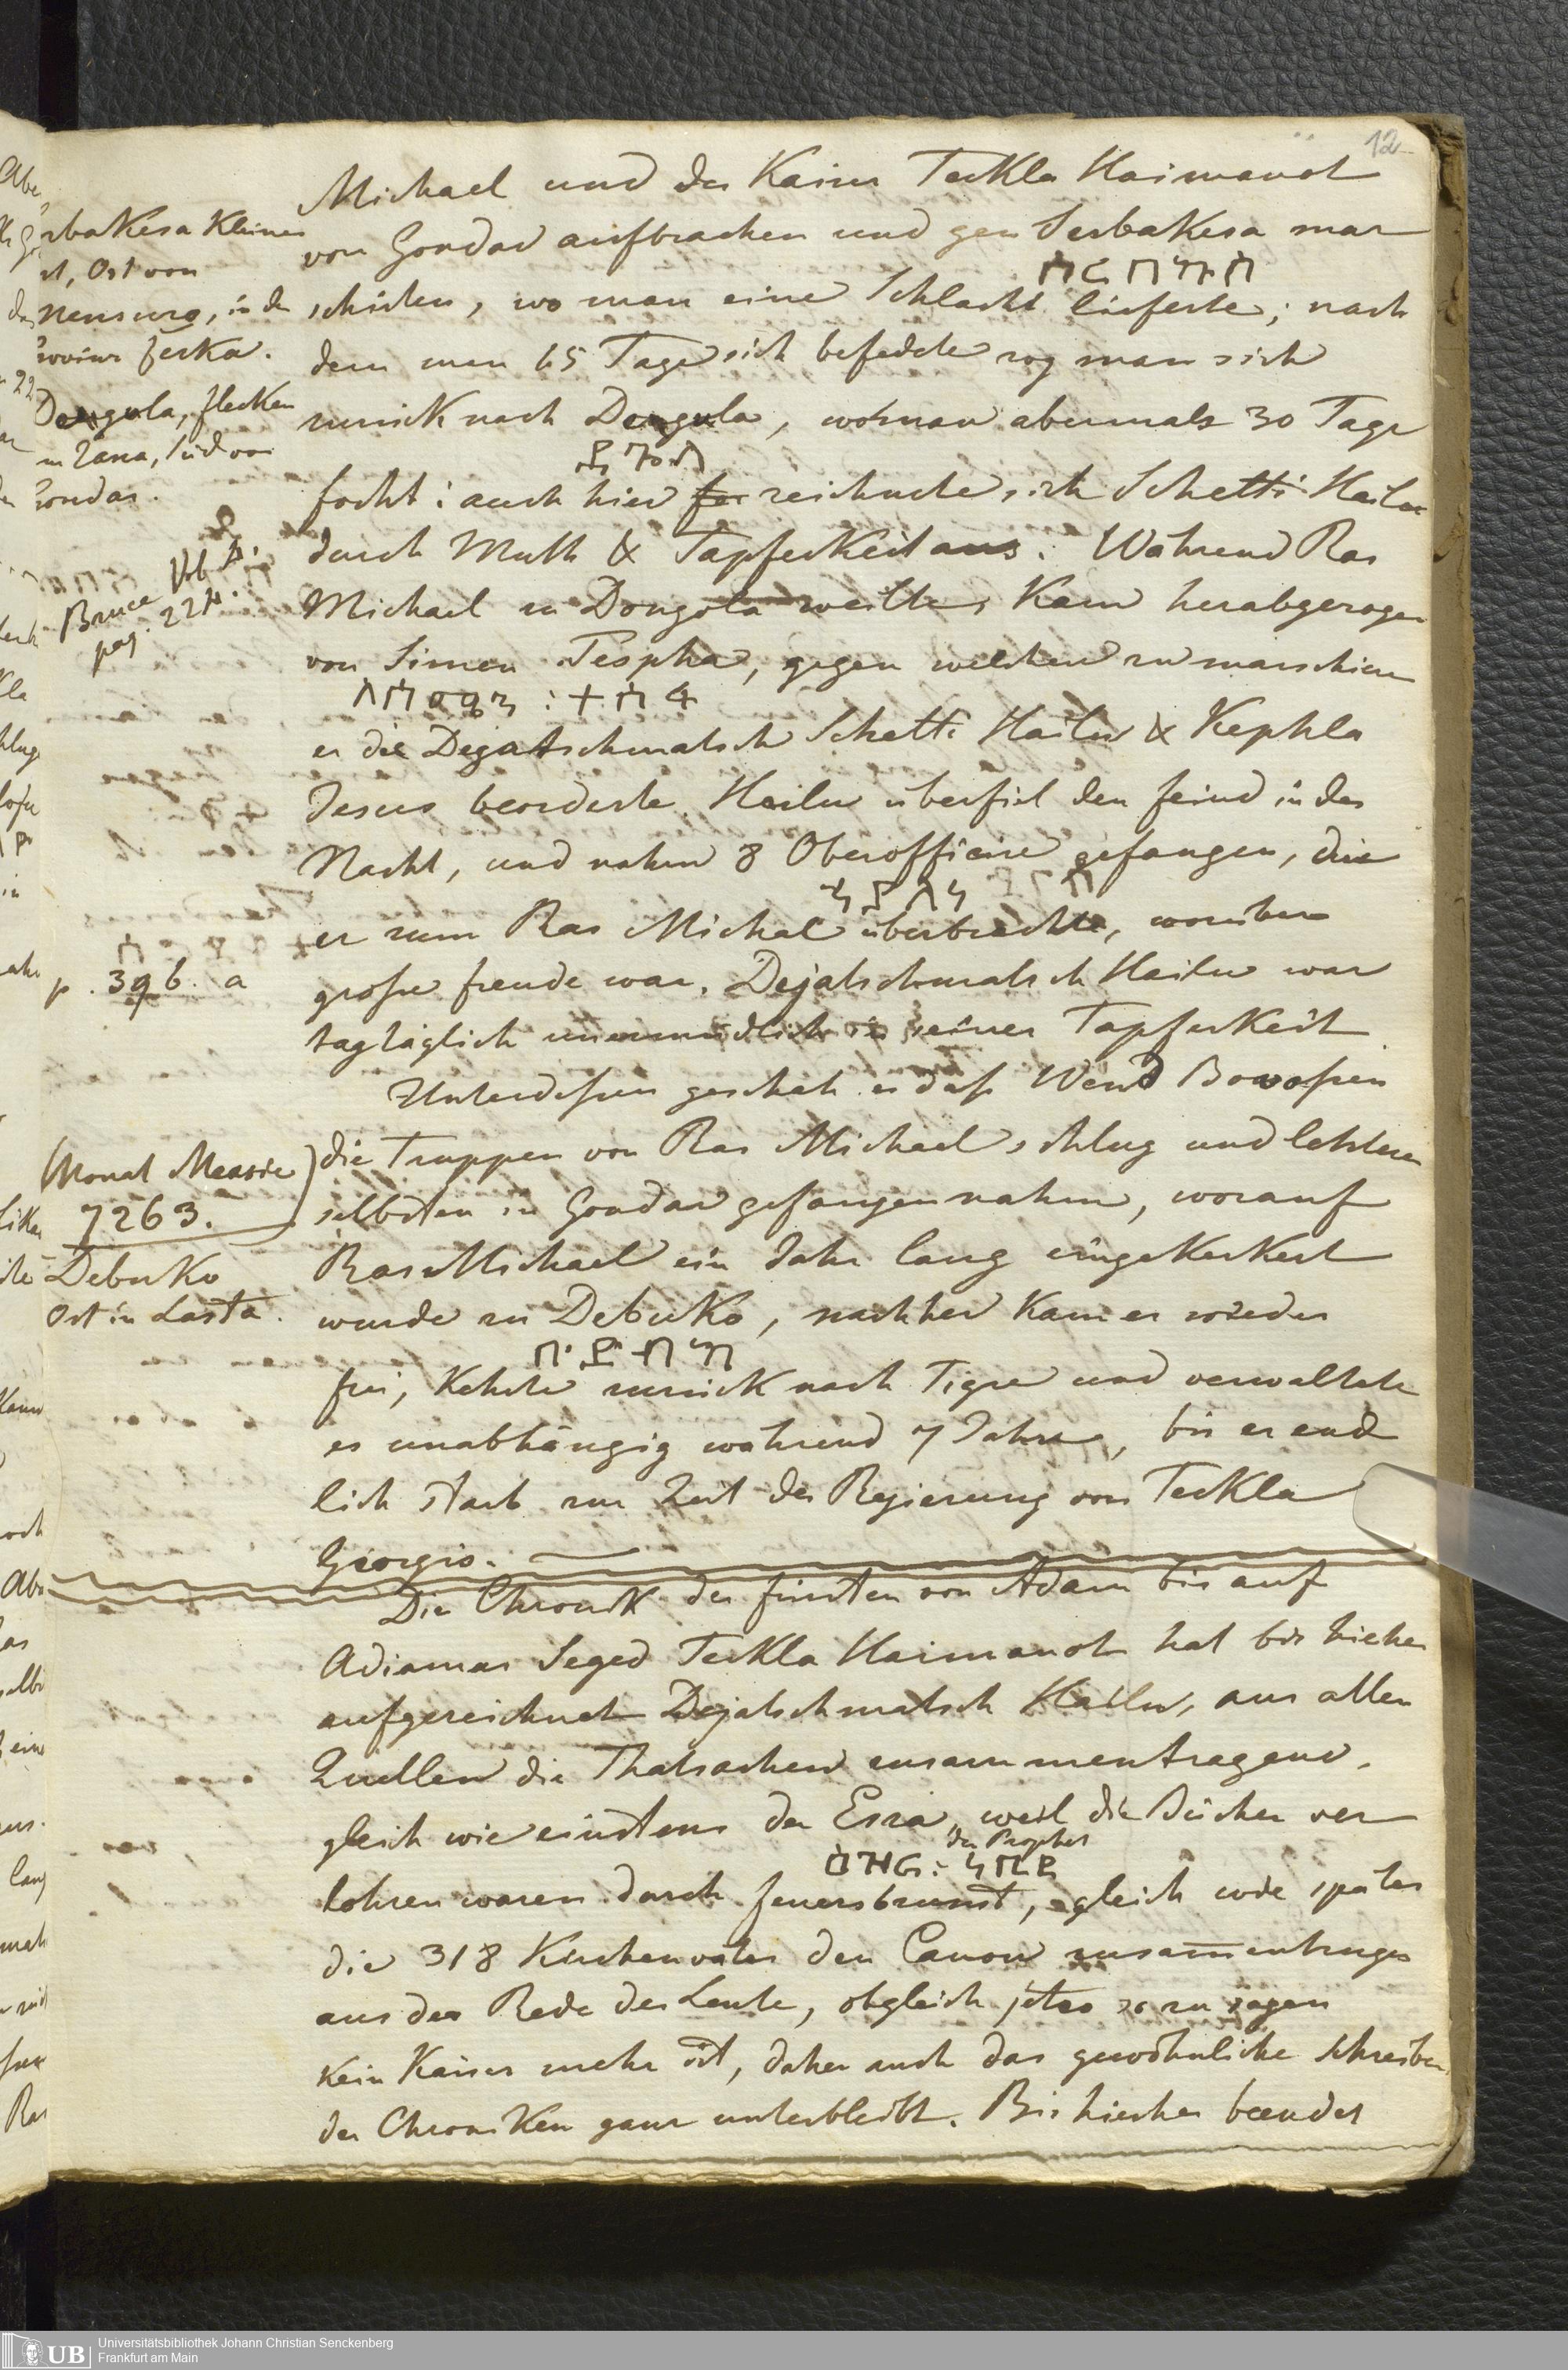 12
Michael und der Kaiser Teckla Haimanot
von Gondar aufbrachen und gen Serbakesa mar
ሰርበኵሰ
schirten, wo man eine Schlacht lieferte; nach
dem man 65 Tage sich befedete zog man sich
zurück nach Dengula, wo man abermals 30 Tage
focht; auch hier zeichnete sich Schetti Hailu
durch Muth & Tapferkeit aus. Während Ras
Michael in Dongola weilte, kam herabgezogen
von Simen Tespha, gegen welchen zu marschiren
er die Dejatschmatsch Schetti Hailu & Kephla
Jesus beorderte. Hailu überfiel den feind in der
Nacht, und nahm 8 Oberofficire gefangen, die
er zum Ras Michal überbrachte, worüber
grosse freude war. Dejatschmatsch Hailu war
tagtäglich unermüdlich in seiner Tapferkeit
Unterdessen geschah es dass Wend Bowossen
die Truppen von Ras Michael schlug und letztern
selbsten in Gondar gefangen nahm, worauf
Ras Michael ein Jahr lang eingekerkert
wurde zu Debuko, nachher kam er wieder
frei, kehrte zurück nach Tigre und verwaltete
es unabhängig während 7 Jahre, bis er end
lich starb zur Zeit der Regierung von Teckla
Giorgis.
Die Chronik der fürsten von Adam bis auf
Adiamas Seged Teckla Haimanot hat bis hieher
aufgezeichnet Dejatschmatsch Hailu, aus allen
Quellen die Thatsachen zusammentragend,
gleich wie einstens der Esra, weil die Bücher ver
der Prophet
ዕዝራ፡ ነቢይ
lohren waren durch feuersbrunst, gleich wie später
die 318 Kirchenväter den Canon zusammentrugen
aus der Rede der Leute, obgleich jetzo so zu sagen
kein Kaiser mehr ist, daher auch das gewöhnliche Schreiben
der Chroniken ganz unterbleibt. Bis hierher beendet
rbakesa kleiner
rt, Ost von
in der
ferka.
Dengula, flecken
in Zana, Süd von
Gondar.
Bruce Vol 4.
pag. 224.
p. 396. a
(Monat Measie)
7263.
Debuko
Ort in Lasta.
UB
Universitätsbibliothek Johann Christian Senckenberg
Frankfurt am Main